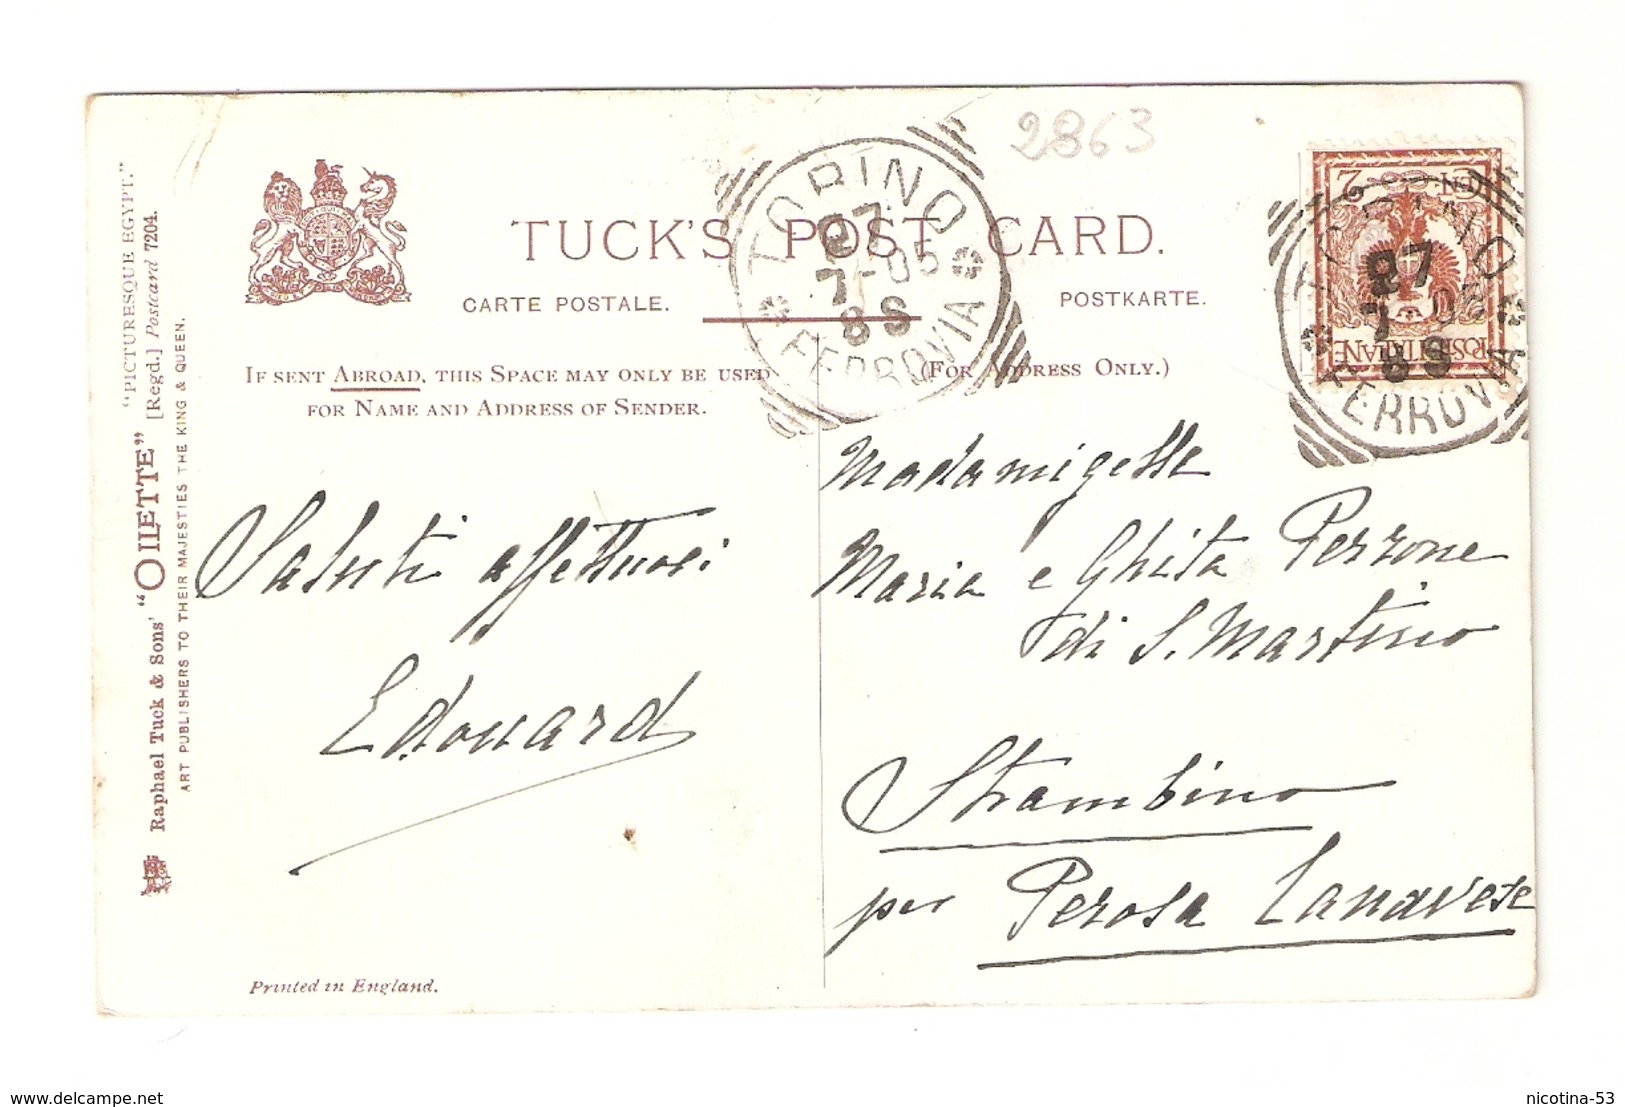 "PICTURESQUE EGYPT."
Raphael Tuck & Sons' "OILETTE" [Regd.] Postcard 7204.
ART PUBLISHERS TO THEIR MAJESTIES THE KING & QUEEN.
2863
TUCK'S POST CARD.
CARTE POSTALE. POSTKARTE.
IF SENT ABROAD, THIS SPACE MAY ONLY BE USED
FOR NAME AND ADDRESS OF SENDER.
(FOR ADDRESS ONLY.)
TORINO
27
7-05
8S
FERROVIA
CEN. 2
POSTE ITALIANE
TORINO
27
7-05
8S
FERROVIA
Saluti affettuosi
Edouard
Madamigelle
Maria e Ghita Perrone
di S. Martino
Strambino
per Perosa Canavese
Printed in England.
www.delcampe.net
nicotina-53